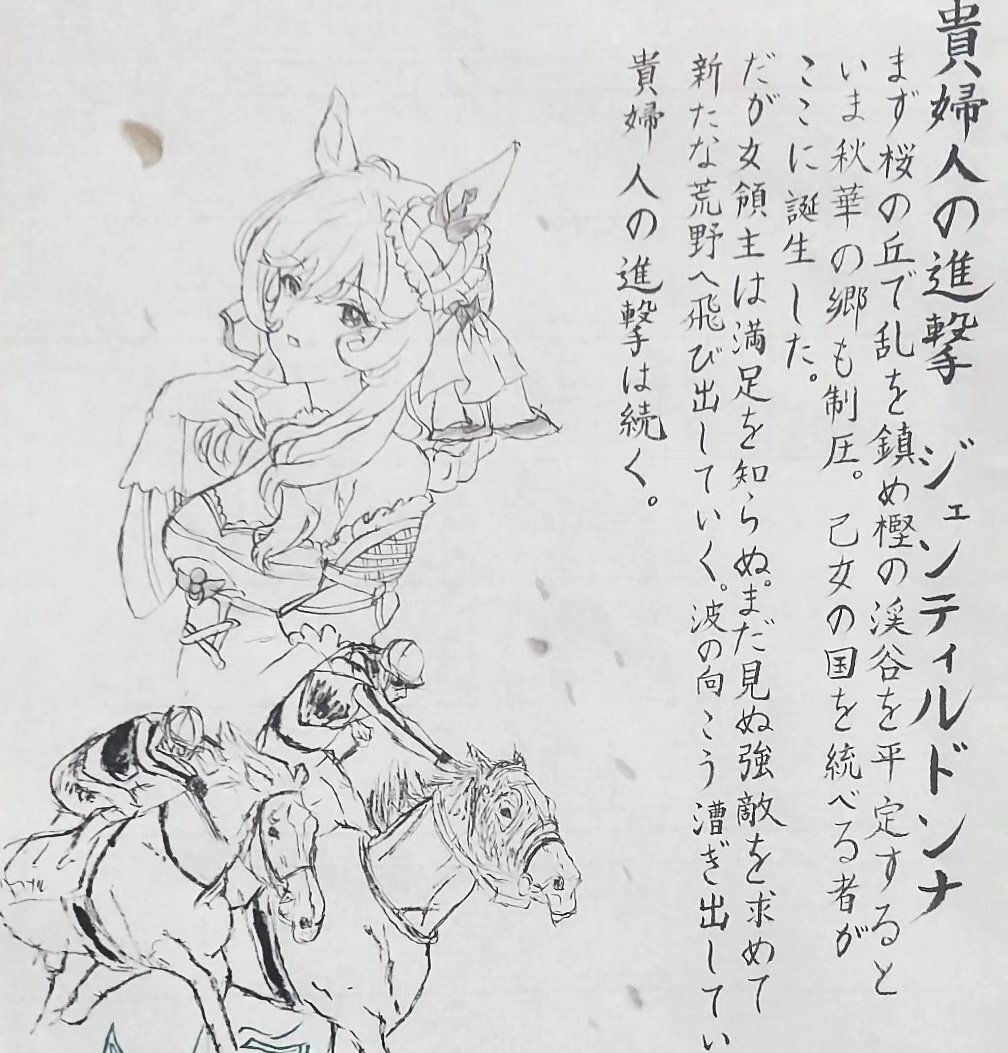 貴婦人の進撃 ジェンティルドンナ
まず桜の丘で乱を鎮め樫の渓谷を平定すると
いま秋華の郷も制圧。己女の国を統べる者が
ここに誕生した。
だが女領主は満足を知らぬ。まだ見ぬ強敵を求めて
新たな荒野へ飛び出していく。波の向こう漕ぎ出してい
貴婦人の進撃は続く。